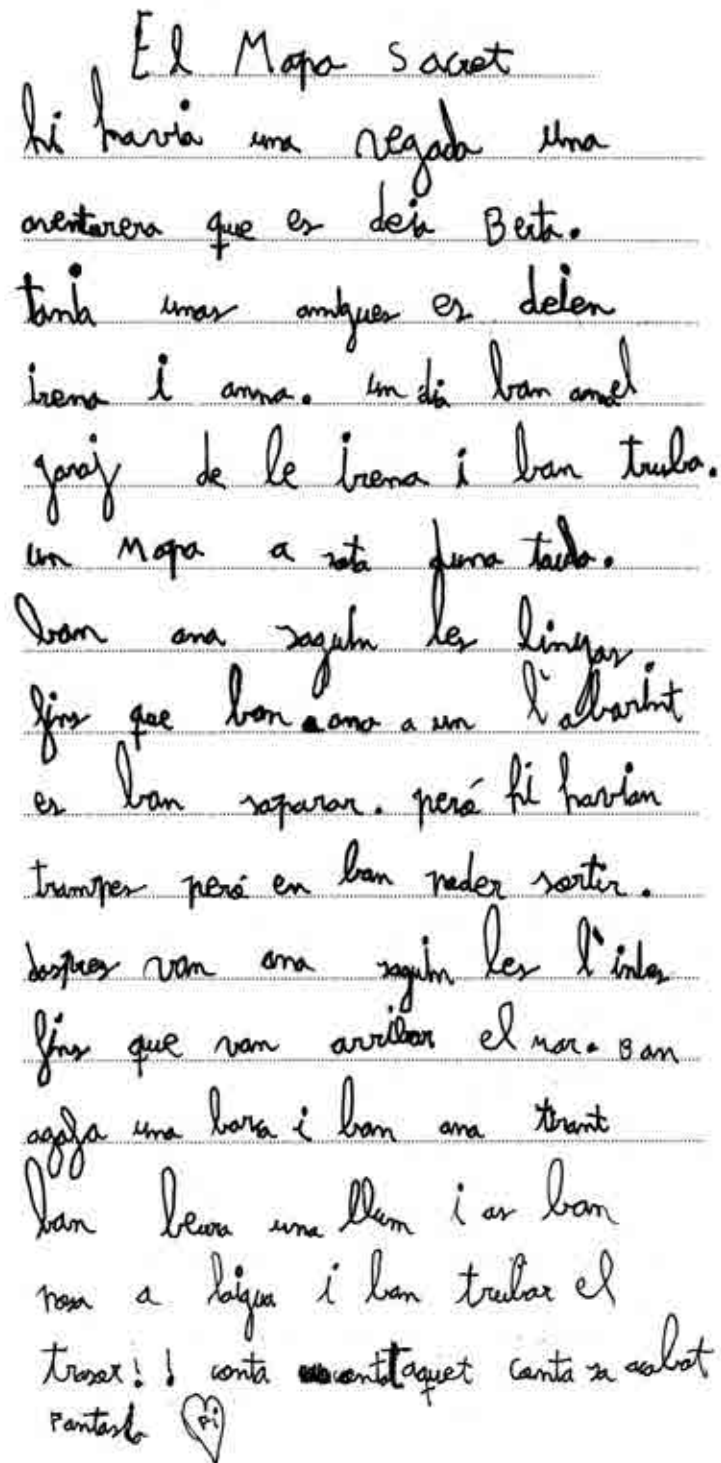 El Mapa Sacret
hi havia una vegada una
aventurera que es deia Berta.
tania unas amigues es deien
irena i anna. un dia ban ana el
garaj de le irena i ban truba.
un Mapa a sota duna taula.
ban ana saguin les linyas
fins que ban ana a un l'abarint
es ban saparar. peró hi havian
trampes peró en ban poder sortir.
daspres van ana saguin les l'inies
fins que van arribar el mar. Ban
agafa una barca i ban ana tirant
ban beura una llum i as ban
posa a laigua i ban trubar el
trasor!! conta contataquet conta sa acabat
Fantastic Fi